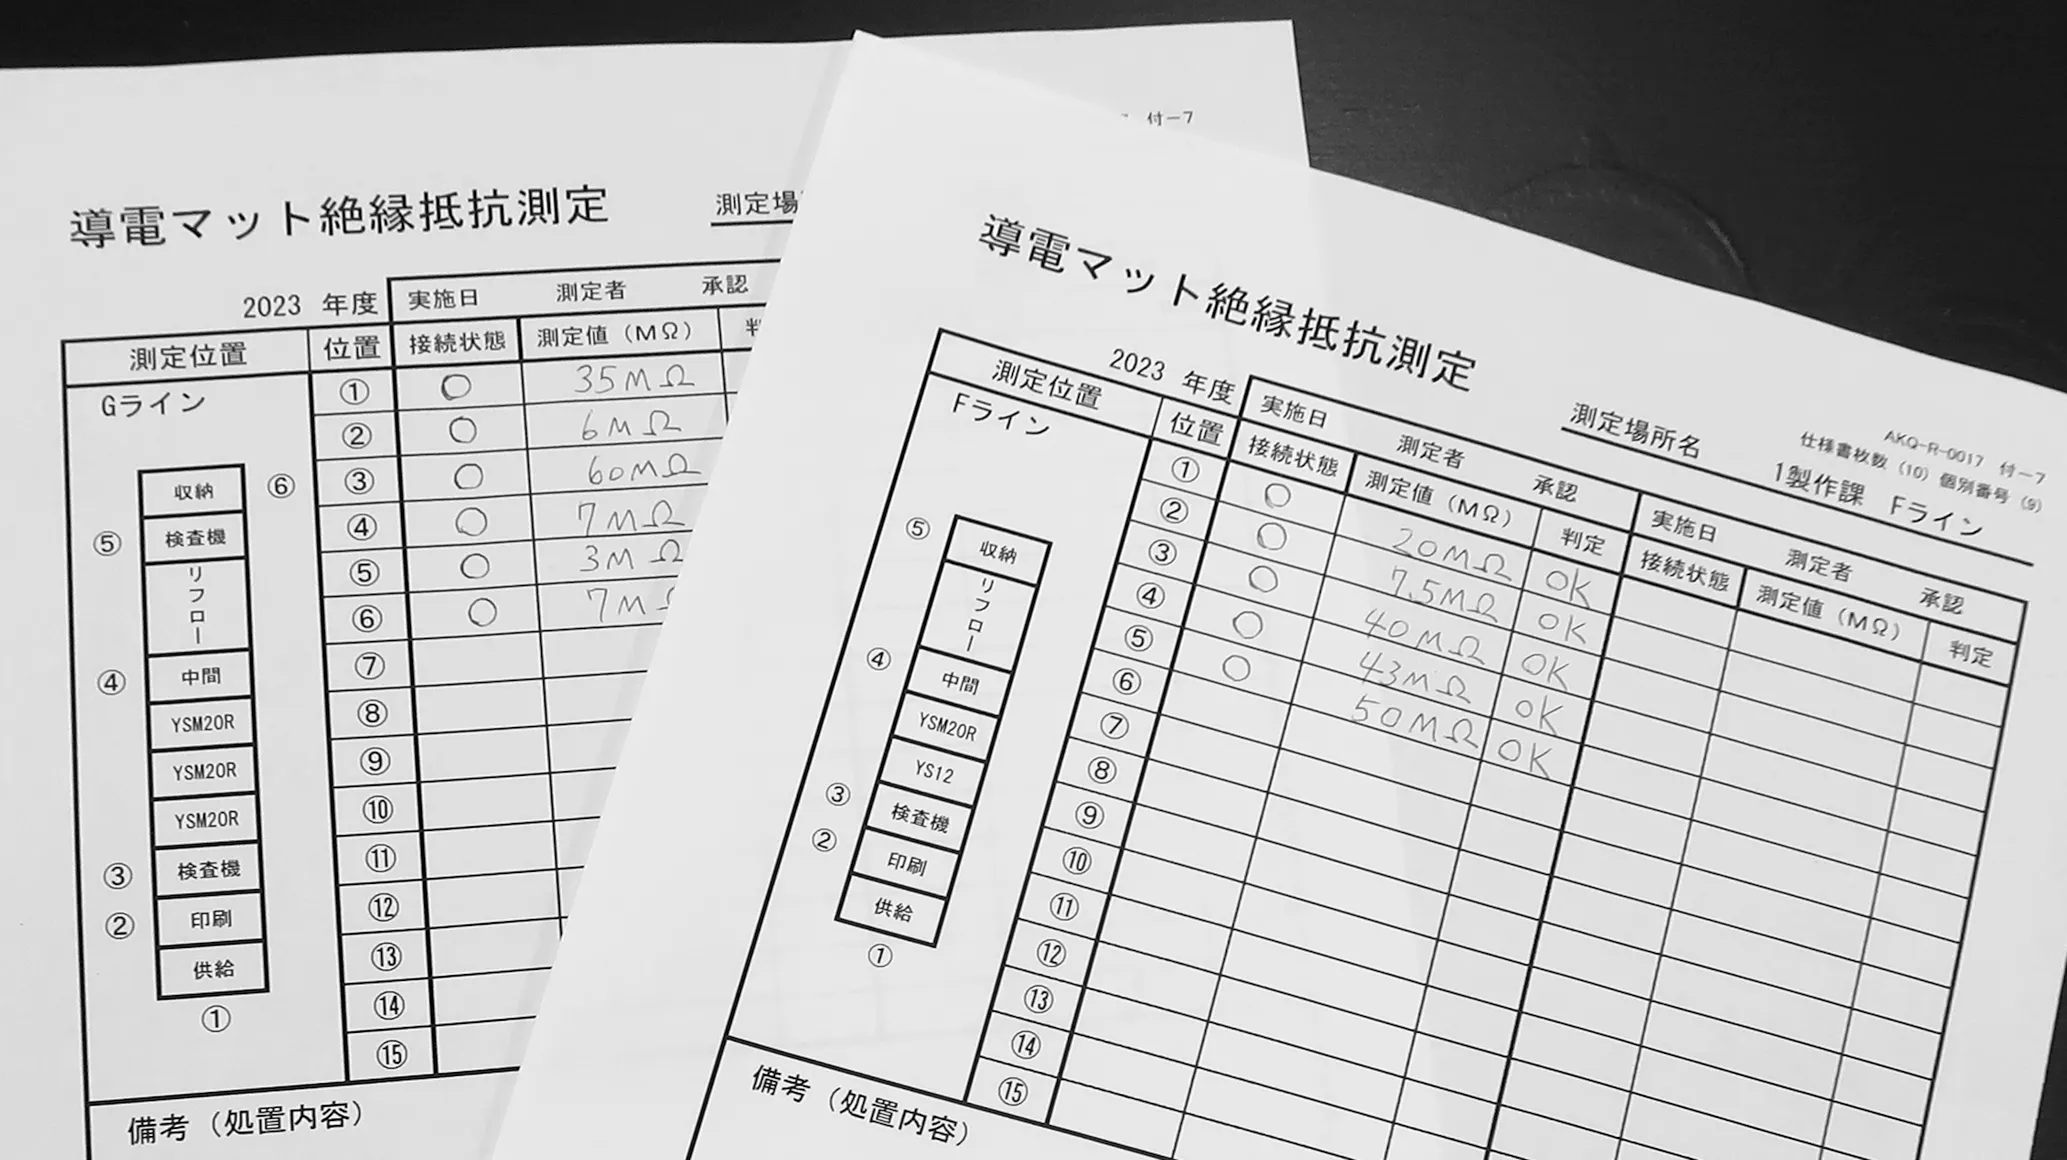 導電マット絶縁抵抗測定
測定場
2023 年度 実施日 測定者 承認
測定位置 位置 接続状態 測定値（MΩ）
Gライン
① ○ 35MΩ
② ○ 6MΩ
③ ○ 60MΩ
④ ○ 7MΩ
⑤ ○ 3MΩ
⑥ ○ 7MΩ
⑦
⑧
⑨
⑩
⑪
⑫
⑬
⑭
⑮
収納 ⑥
⑤ 検査機
リフロー
④ 中間
YSM20R
YSM20R
YSM20R
③ 検査機
② 印刷
供給
①
備考（処置内容）
付－7
導電マット絶縁抵抗測定
AKQ-R-0017 付－7
仕様書枚数（10）個別番号（9）
測定場所名 1製作課 Fライン
2023 年度 実施日 測定者 承認 実施日 測定者 承認
測定位置 位置 接続状態 測定値（MΩ） 判定 接続状態 測定値（MΩ） 判定
Fライン
① ○ 20MΩ OK
② ○ 7.5MΩ OK
③ ○ 40MΩ OK
④ ○ 43MΩ OK
⑤ ○ 50MΩ OK
⑥
⑦
⑧
⑨
⑩
⑪
⑫
⑬
⑭
⑮
⑤ 収納
リフロー
④ 中間
YSM20R
YS12
③ 検査機
② 印刷
供給
①
備考（処置内容）